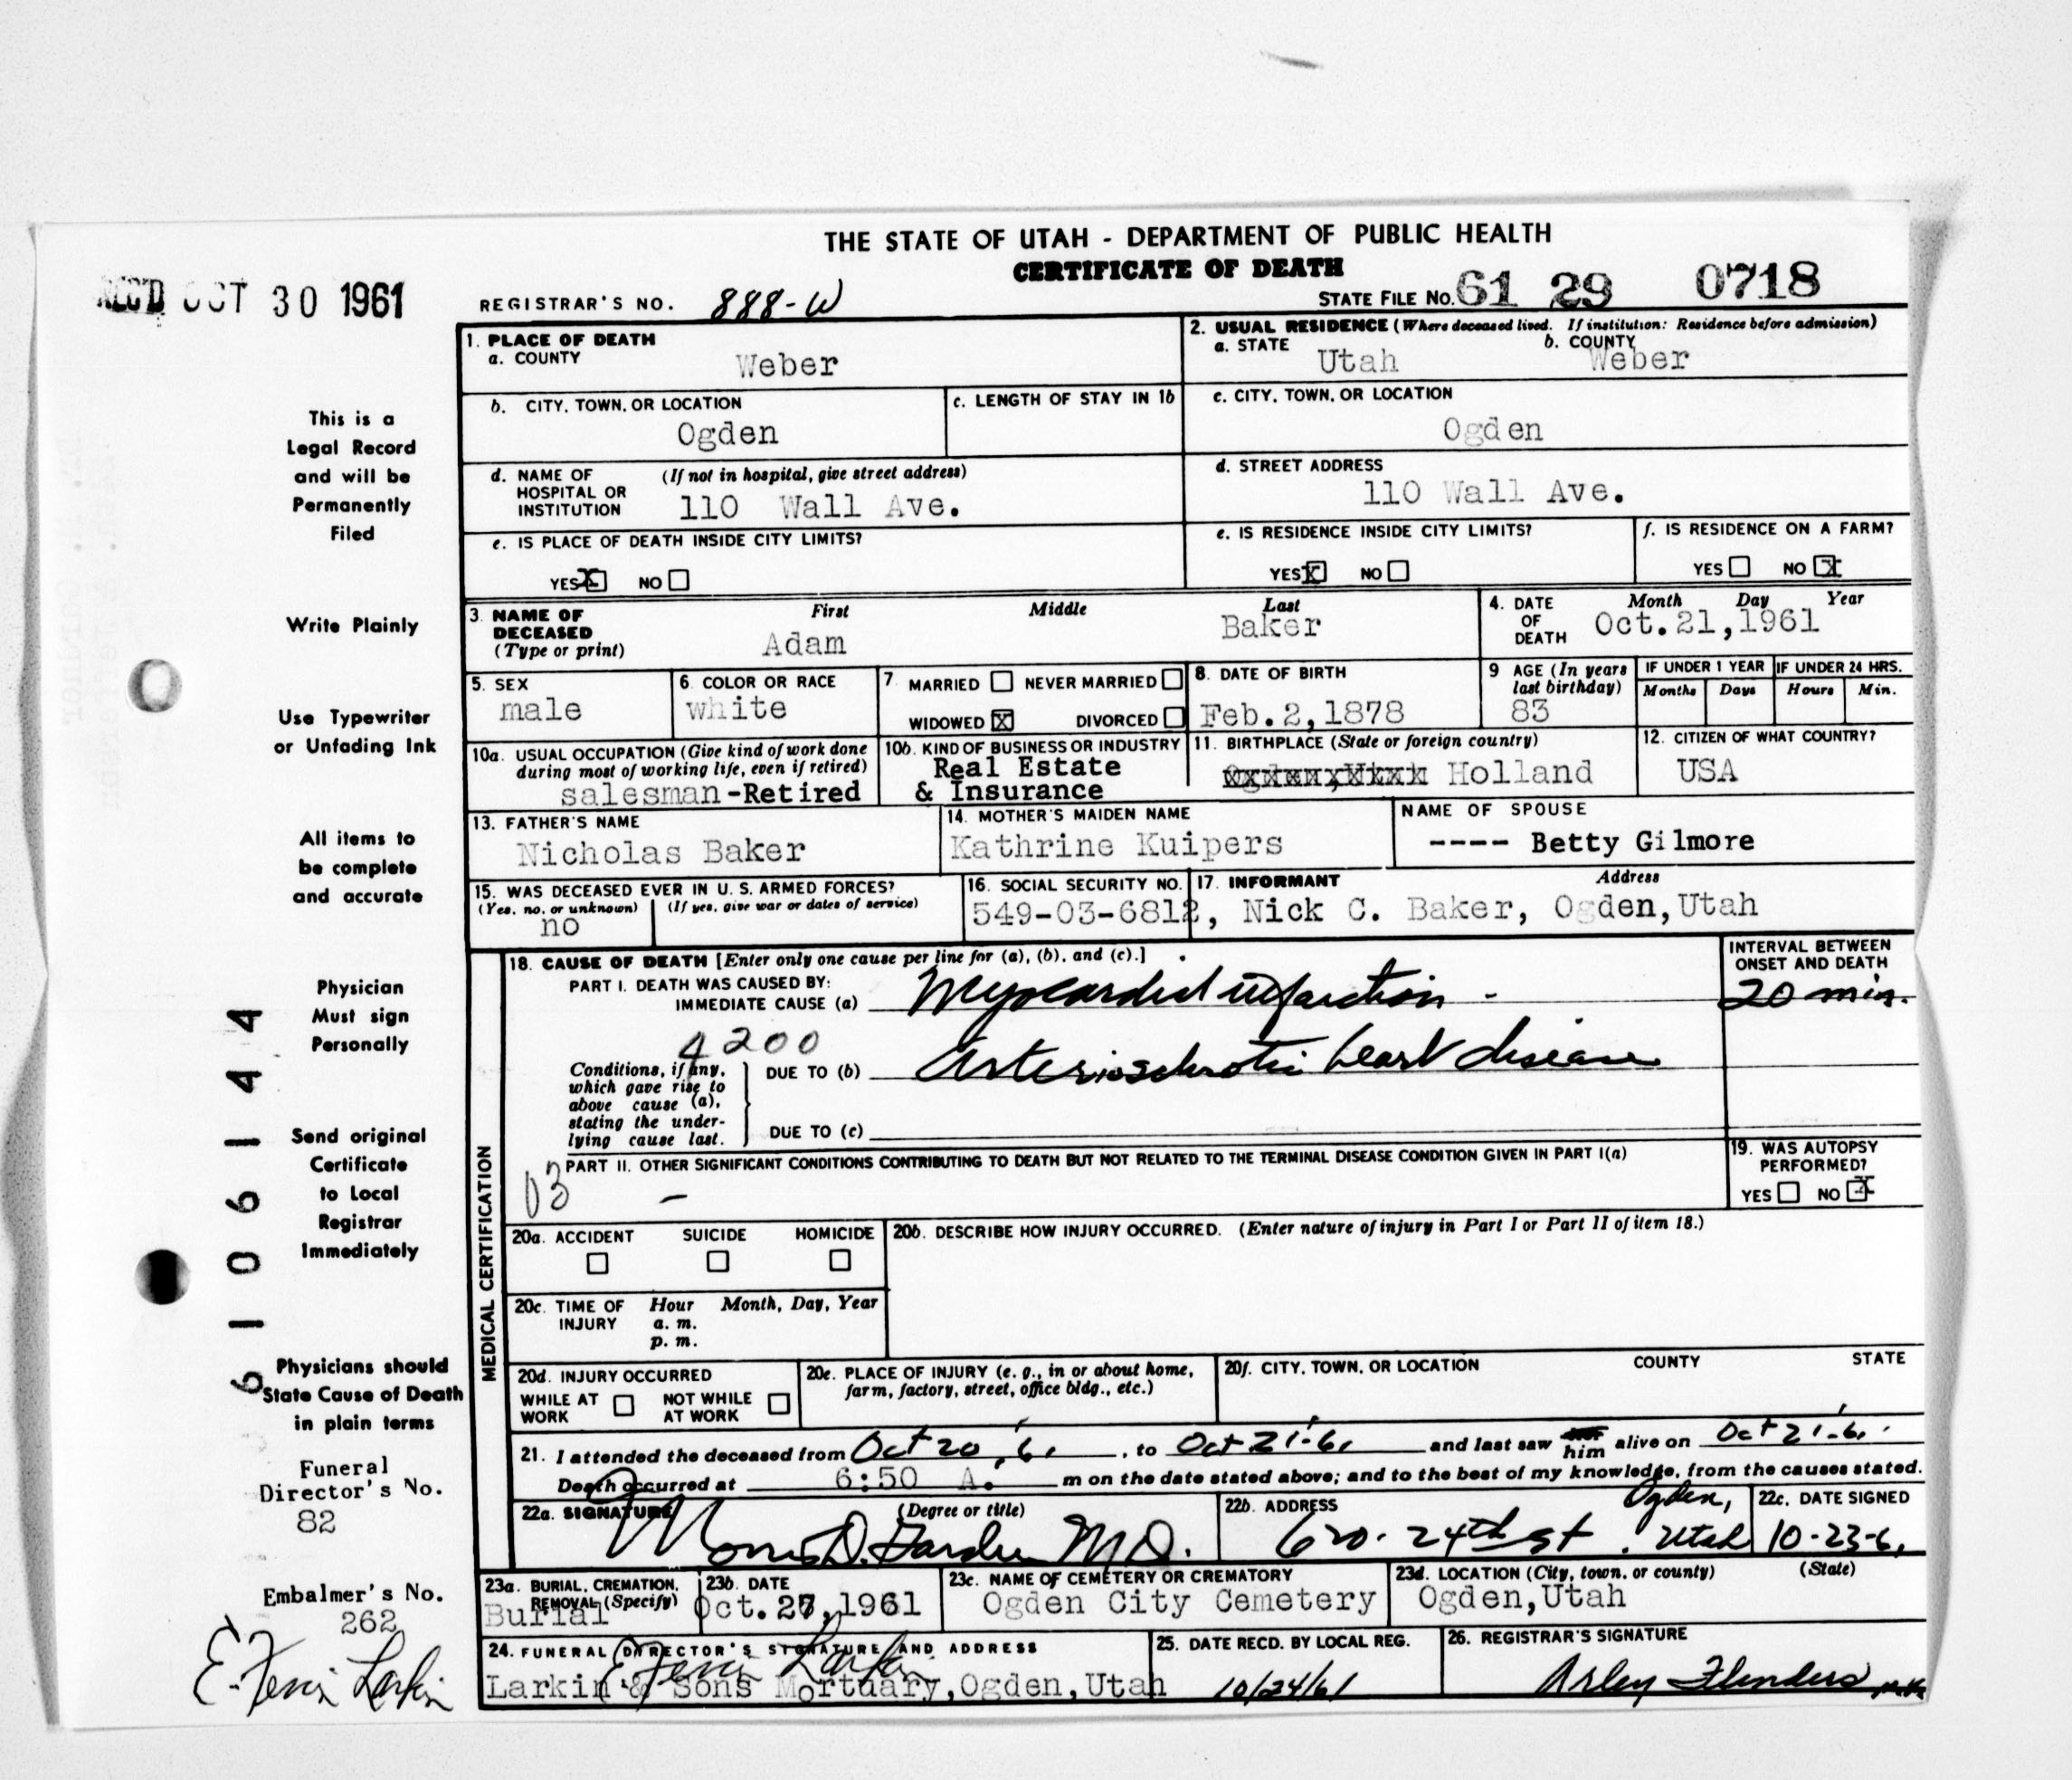 THE STATE OF UTAH - DEPARTMENT OF PUBLIC HEALTH
CERTIFICATE OF DEATH
REC'D OCT 30 1961
REGISTRAR'S NO. 888-W
STATE FILE No. 61 29 0718
1. PLACE OF DEATH
a. COUNTY Weber
2. USUAL RESIDENCE (Where deceased lived. If institution: Residence before admission)
a. STATE Utah b. COUNTY Weber
b. CITY, TOWN, OR LOCATION Ogden
c. LENGTH OF STAY IN 1b
c. CITY, TOWN, OR LOCATION Ogden
d. NAME OF HOSPITAL OR INSTITUTION (If not in hospital, give street address) 110 Wall Ave.
d. STREET ADDRESS 110 Wall Ave.
e. IS PLACE OF DEATH INSIDE CITY LIMITS?
YES X NO
e. IS RESIDENCE INSIDE CITY LIMITS?
YES X NO
f. IS RESIDENCE ON A FARM?
YES NO X
3. NAME OF DECEASED (Type or print)
First Middle Last
Adam Baker
4. DATE OF DEATH Month Day Year
Oct.21,1961
5. SEX male
6. COLOR OR RACE white
7. MARRIED NEVER MARRIED
WIDOWED X DIVORCED
8. DATE OF BIRTH Feb.2,1878
9 AGE (In years last birthday) 83
IF UNDER 1 YEAR IF UNDER 24 HRS.
Months Days Hours Min.
10a. USUAL OCCUPATION (Give kind of work done during most of working life, even if retired)
salesman-Retired
10b. KIND OF BUSINESS OR INDUSTRY
Real Estate
& Insurance
11. BIRTHPLACE (State or foreign country)
Holland
12. CITIZEN OF WHAT COUNTRY?
USA
13. FATHER'S NAME
Nicholas Baker
14. MOTHER'S MAIDEN NAME
Kathrine Kuipers
NAME OF SPOUSE
---- Betty Gilmore
15. WAS DECEASED EVER IN U. S. ARMED FORCES?
(Yes, no, or unknown) (If yes, give war or dates of service)
no
16. SOCIAL SECURITY NO.
549-03-6812,
17. INFORMANT Address
Nick C. Baker, Ogden,Utah
MEDICAL CERTIFICATION
18. CAUSE OF DEATH [Enter only one cause per line for (a), (b), and (c).]
INTERVAL BETWEEN ONSET AND DEATH
PART I. DEATH WAS CAUSED BY:
IMMEDIATE CAUSE (a) Myocardial infarction -
20 min.
4200
Conditions, if any, which gave rise to above cause (a), stating the underlying cause last.
DUE TO (b) Arteriosclerotic heart disease
DUE TO (c)
03
PART II. OTHER SIGNIFICANT CONDITIONS CONTRIBUTING TO DEATH BUT NOT RELATED TO THE TERMINAL DISEASE CONDITION GIVEN IN PART I(a)
-
19. WAS AUTOPSY PERFORMED?
YES NO X
20a. ACCIDENT SUICIDE HOMICIDE
20b. DESCRIBE HOW INJURY OCCURRED. (Enter nature of injury in Part I or Part II of item 18.)
20c. TIME OF INJURY Hour Month, Day, Year
a. m.
p. m.
20d. INJURY OCCURRED
WHILE AT WORK NOT WHILE AT WORK
20e. PLACE OF INJURY (e. g., in or about home, farm, factory, street, office bldg., etc.)
20f. CITY, TOWN, OR LOCATION COUNTY STATE
21. I attended the deceased from Oct 20, '61, to Oct 21'-61 and last saw him alive on Oct 21'-61
Death occurred at 6:50 A. m on the date stated above; and to the best of my knowledge, from the causes stated.
22a. SIGNATURE (Degree or title)
M.D.
22b. ADDRESS
620-24th st. Ogden, Utah
22c. DATE SIGNED
10-23-61
23a. BURIAL, CREMATION, REMOVAL (Specify)
Burial
23b. DATE
Oct.27,1961
23c. NAME OF CEMETERY OR CREMATORY
Ogden City Cemetery
23d. LOCATION (City, town, or county) (State)
Ogden,Utah
24. FUNERAL DIRECTOR'S SIGNATURE AND ADDRESS
Larkin & Sons Mortuary,Ogden,Utah
25. DATE RECD. BY LOCAL REG.
10/24/61
26. REGISTRAR'S SIGNATURE
Arley Flinders
This is a
Legal Record
and will be
Permanently
Filed
Write Plainly
Use Typewriter
or Unfading Ink
All items to
be complete
and accurate
Physician
Must sign
Personally
Send original
Certificate
to Local
Registrar
Immediately
Physicians should
State Cause of Death
in plain terms
61 06144
Funeral
Director's No.
82
Embalmer's No.
262